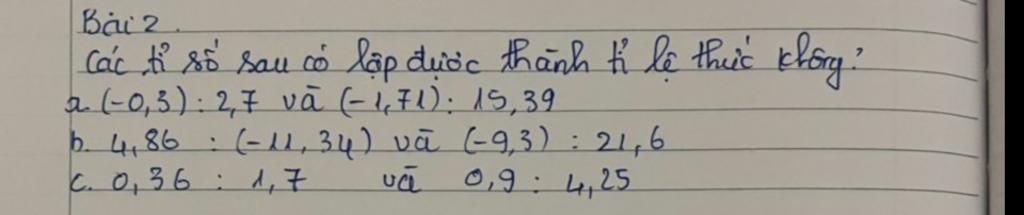 Bài 2.
Các tỉ số sau có lập được thành tỉ lệ thức không?
a. (-0,3) : 2,7 và (-1,71) : 15,39
b. 4,86 : (-11,34) và (-9,3) : 21,6
c. 0,36 : 1,7 và 0,9 : 4,25